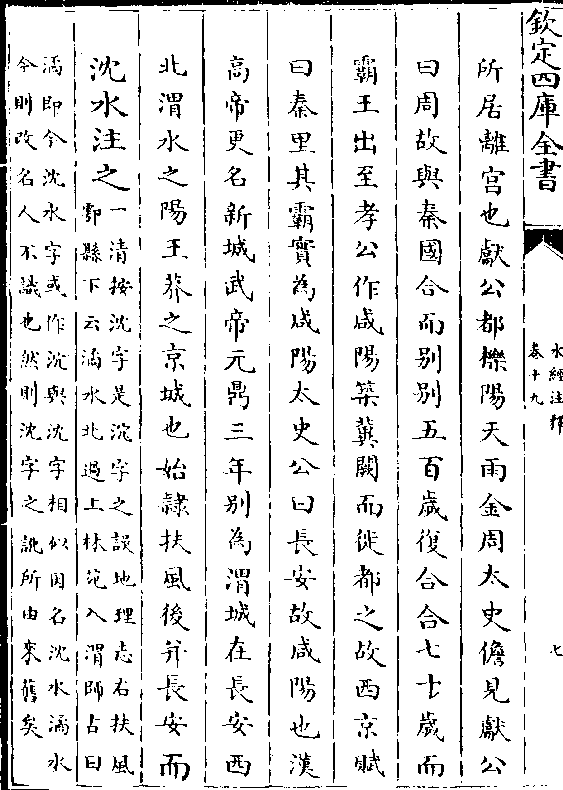 欽定四庫全書
水經注釋
卷十九
七
所居離宮也獻公都櫟陽天雨金周太史儋見獻公
曰周故與秦國合而别别五百歲復合合七十歲而
霸王出至孝公作咸陽築冀闕而徙都之故西京賦
曰秦里其霸實為咸陽太史公曰長安故咸陽也漢
高帝更名新城武帝元鼎三年别為渭城在長安西
北渭水之陽王莽之京城也始隸扶風後并長安而
沈水注之
一清按沈字是沇字之誤地理志右扶風
鄠縣下云潏水北過上林苑入渭師古曰
潏即今沈水字或作沇與沈字相似因名沈水潏水
今則改名人不識也然則沈字之訛所由來舊矣